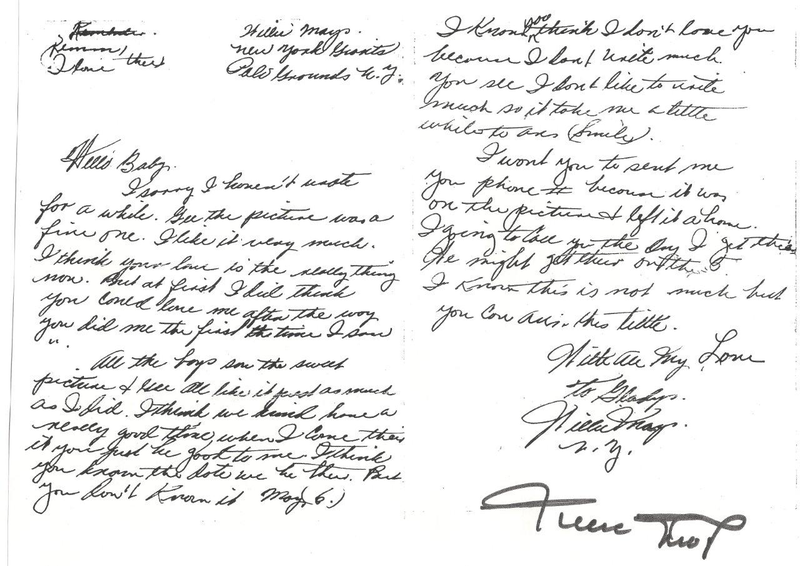 Willie Mays.
New York Giants
Polo Grounds N.Y.
Hello Baby.
I sorry I haven't wrote
for a while. Gee the picture was a
fine one. I like it very much.
I think your love is the really thing
now. But at first I did think
you could love me after the way
you did me the first the time I saw
".
All the boys saw the sweet
picture & all like it just as much
as I did. I think we have a
really good time when I come their
if you just be good to me. I think
you know the date we be ther. But
you don't know it May, 6.)
I know you think I don't love you
because I don't write much
you see I don't like to write
much so it take me a little
while to ans (Smile).
I want you to sent me
you phone # because it was
on the picture & left it a home.
I going to call you the day I get
We might get their on the 5
I know this is not much but
you can ans. this little.
With All My Love
to Gladys.
Willie Mays.
N.Y.